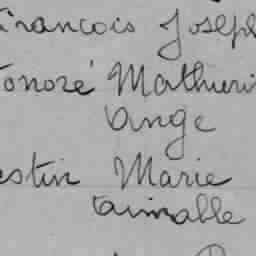 François Joseph
onoré Mathurin
Ange
estin Marie
Aimable